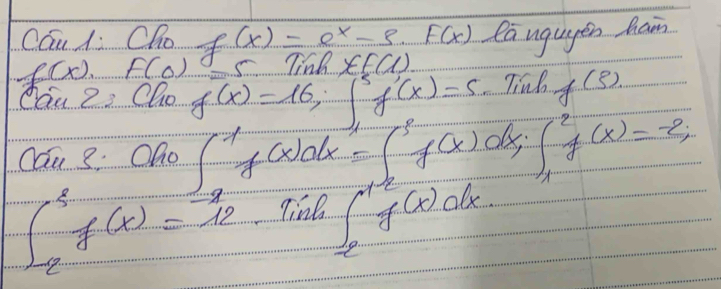 Câu 1: Cho f(x) = e^x - 3. F(x) là nguyên hàm
f(x). F(0) = 5. Tính F(1).
Câu 2: Cho f(x) = 16; ∫_1^3 f'(x) = 5. Tính f(3).
Câu 3: Cho ∫_{-2}^{-1} f(x) dx = ∫_2^3 f(x) dx; ∫_1^2 f(x) = -2;
∫_{-2}^3 f(x) = 12. Tính f(x) dx.